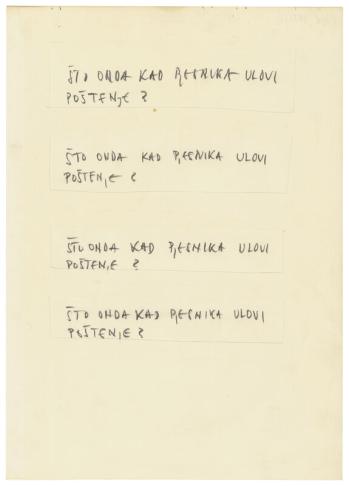 ŠTO ONDA KAD PJESNIKA ULOVI
POŠTENJE ?
ŠTO ONDA KAD PJESNIKA ULOVI
POŠTENJE ?
ŠTO ONDA KAD PJESNIKA ULOVI
POŠTENJE ?
ŠTO ONDA KAD PJESNIKA ULOVI
POŠTENJE ?